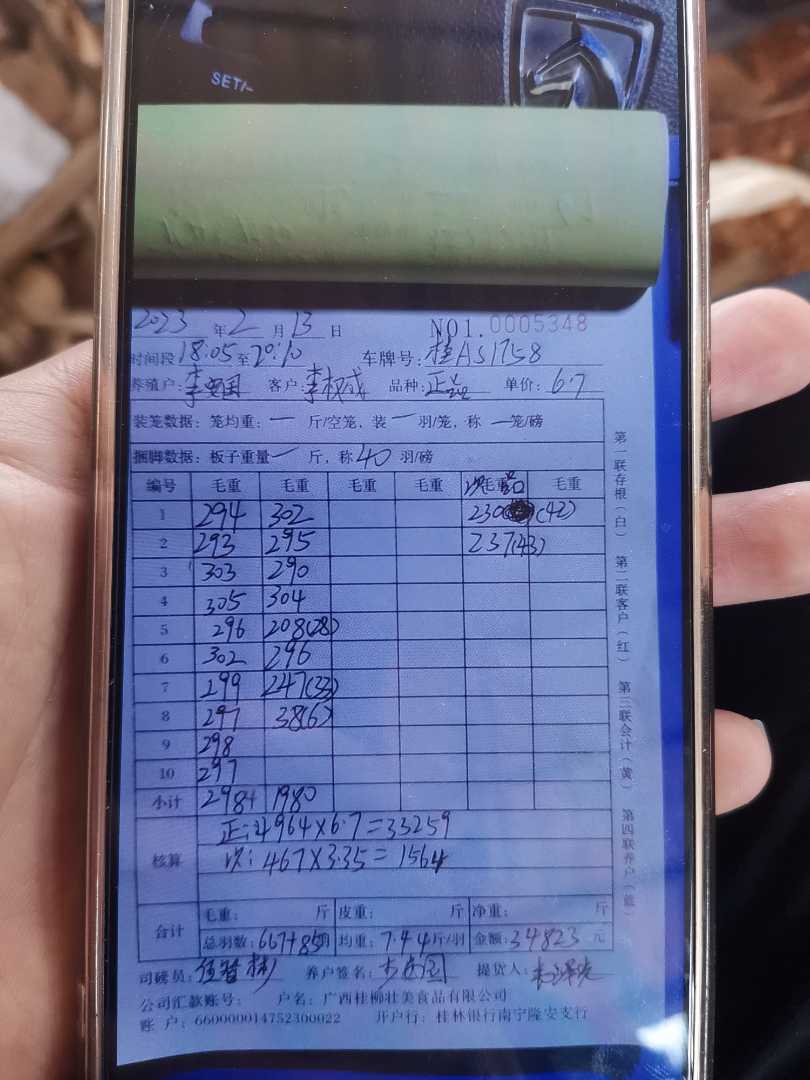 SET/-
2023 年 2 月 13 日 NO1. 0005348
时间段 18:05 至 20:10 车牌号: 桂AS1758
养殖户: 李 国 客户: 李权成 品种: 正 单价: 6.7
装笼数据: 笼均重: 一 斤/空笼, 装 一 羽/笼, 称 一 笼/磅
捆脚数据: 板子重量 一 斤, 称 40 羽/磅
编号 毛重 毛重 毛重 毛重 次品 毛重 毛重
1 294 302 230 (42)
2 293 295 237(43)
3 303 290
4 305 304
5 296 208(28)
6 302 296
7 299 247(33)
8 297 38(6)
9 298
10 297
小计 2984 1980
核算 正: 4964×6.7=33259
次: 467×3.35=1564
合计 毛重: 斤 皮重: 斤 净重: 斤
总羽数: 667+85羽 均重: 7.44斤/羽 金额: 34823 元
司磅员: 养户签名: 提货人:
公司汇款账号: 户名: 广西桂柳壮美食品有限公司
账 户: 660000014752300022 开户行: 桂林银行南宁隆安支行
第一联存根(白) 第二联客户(红) 第三联会计(黄) 第四联养户(蓝)